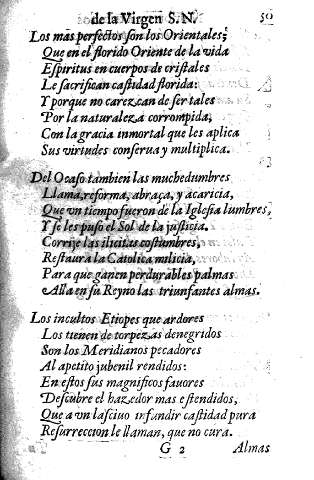 de la Virgen S.N. 50
Los mas perfectos son los Orientales;
Que en el florido Oriente de la vida
Espiritus en cuerpos de cristales
Le sacrifican castidad florida:
Y porque no carezcan de ser tales
Por la naturaleza corrompida,
Con la gracia inmortal que les aplica
Sus virtudes conserua y multiplica.
Del Ocaso tambien las muchedumbres
Llama, reforma, abraça, y acaricia,
Que vn tiempo fueron de la Iglesia lumbres,
Y se les puso el Sol de la justicia.
Corrije las ilicitas costumbres,
Restaura la Catolica milicia,
Para que ganen perdurables palmas
Alla en su Reyno las triunfantes almas.
Los incultos Etiopes que ardores
Los tienen de torpezas denegridos
Son los Meridianos pecadores
Al apetito jubenil rendidos:
En estos sus magnificos fauores
Descubre el hazedor mas estendidos,
Que a vn lasciuo infundir castidad pura
Resurreccion le llaman, que no cura.
G 2 Almas